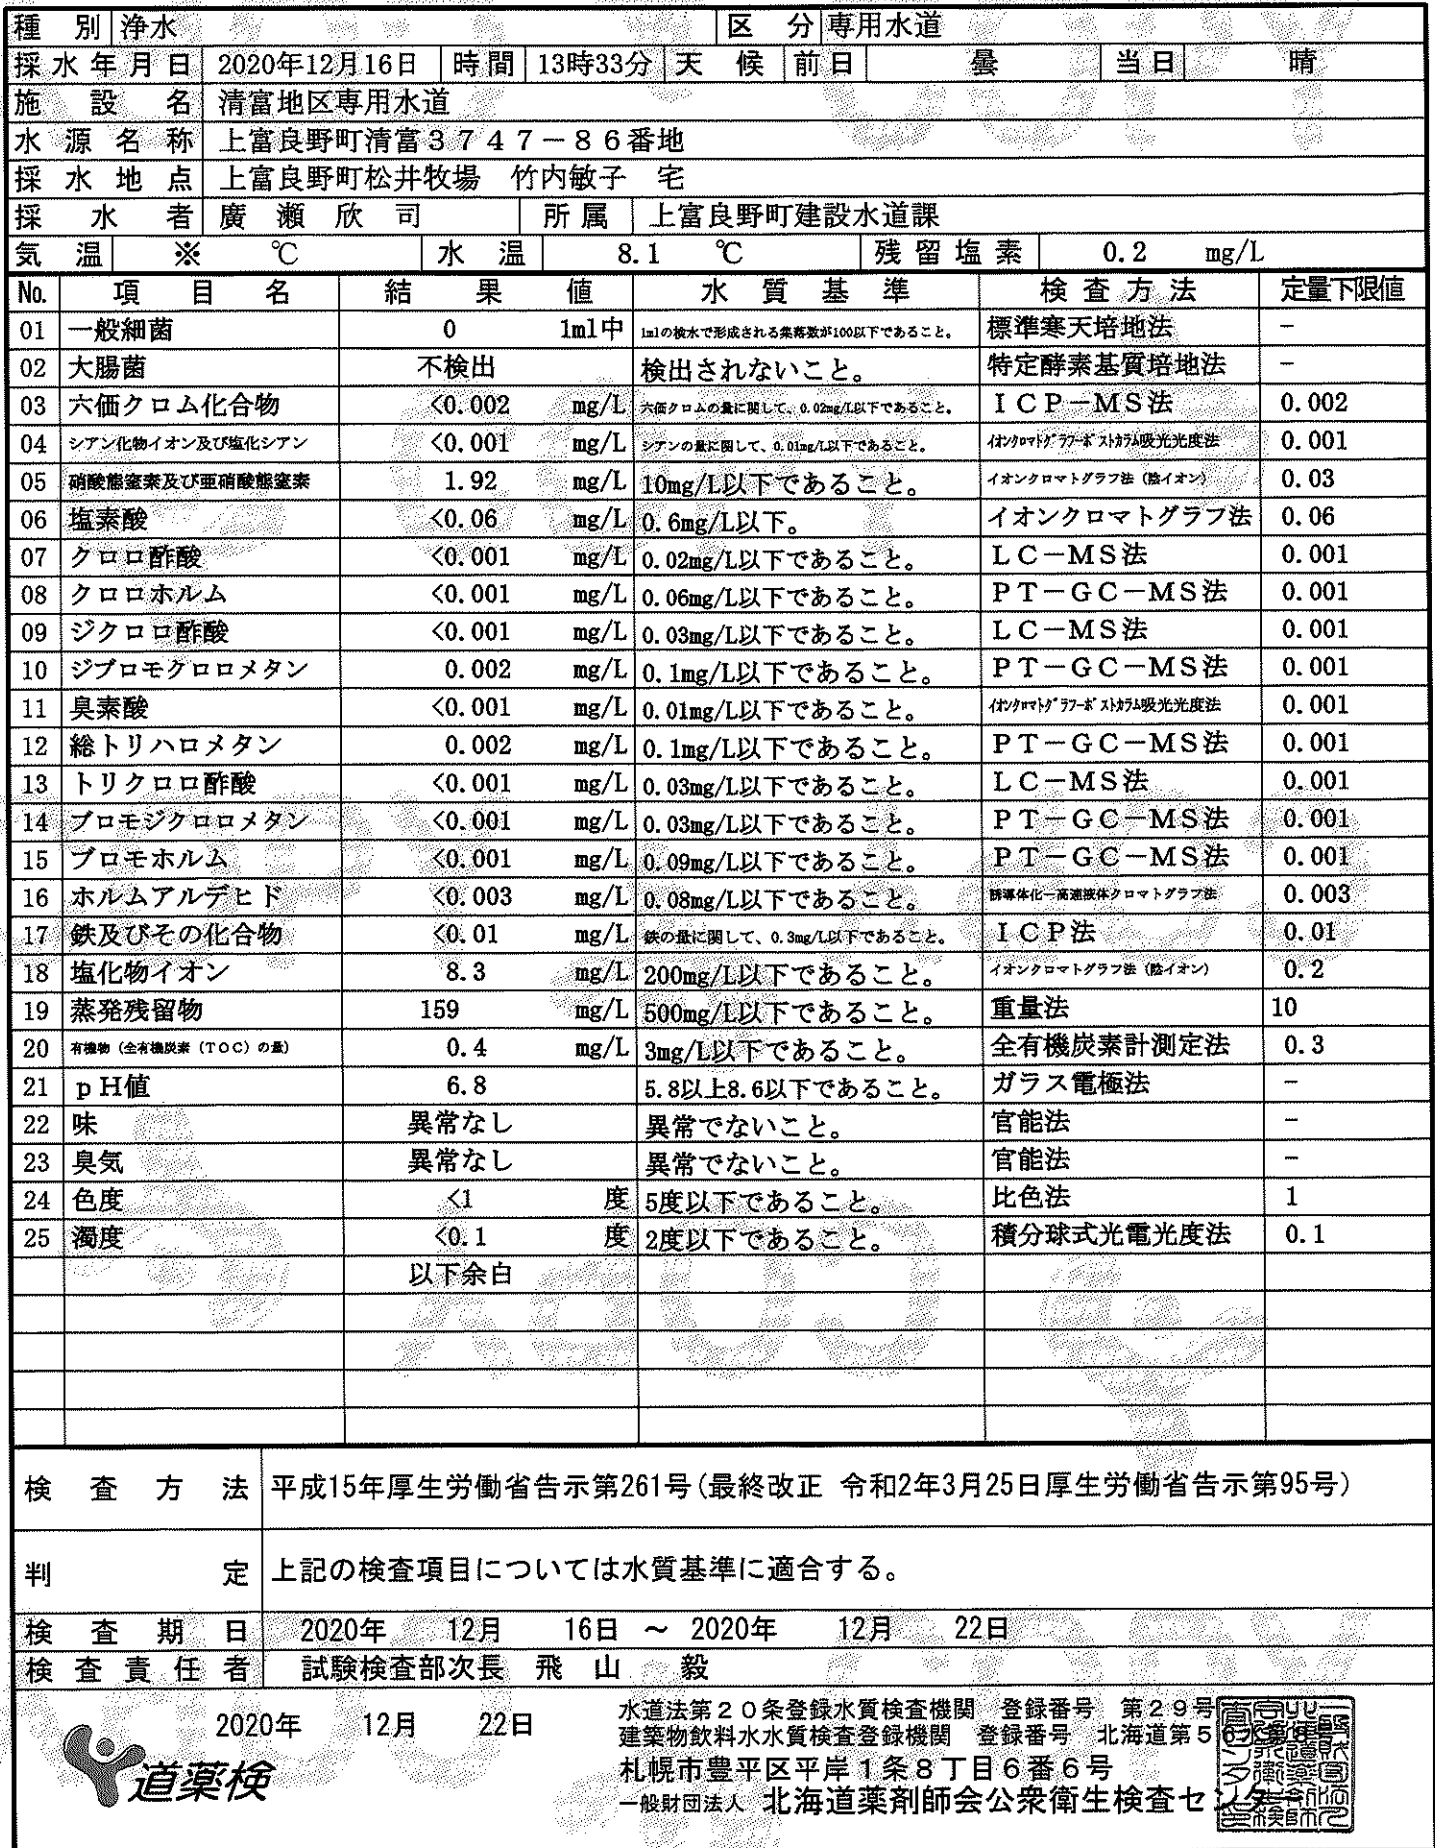 種別 浄水 区分 専用水道
採水年月日 2020年12月16日 時間 13時33分 天候 前日 曇 当日 晴
施設名 清富地区専用水道
水源名称 上富良野町清富3747-86番地
採水地点 上富良野町松井牧場 竹内敏子 宅
採水者 廣瀬欣司 所属 上富良野町建設水道課
気温 ※ ℃ 水温 8.1 ℃ 残留塩素 0.2 mg/L
No. 項目名 結果値 水質基準 検査方法 定量下限値
01 一般細菌 0 1ml中 1mlの検水で形成される集落数が100以下であること。 標準寒天培地法 -
02 大腸菌 不検出 検出されないこと。 特定酵素基質培地法 -
03 六価クロム化合物 <0.002 mg/L 六価クロムの量に関して、0.02mg/L以下であること。 ICP-MS法 0.002
04 シアン化物イオン及び塩化シアン <0.001 mg/L シアンの量に関して、0.01mg/L以下であること。 イオンクロマトグラフ-ポストカラム吸光光度法 0.001
05 硝酸態窒素及び亜硝酸態窒素 1.92 mg/L 10mg/L以下であること。 イオンクロマトグラフ法(陰イオン) 0.03
06 塩素酸 <0.06 mg/L 0.6mg/L以下。 イオンクロマトグラフ法 0.06
07 クロロ酢酸 <0.001 mg/L 0.02mg/L以下であること。 LC-MS法 0.001
08 クロロホルム <0.001 mg/L 0.06mg/L以下であること。 PT-GC-MS法 0.001
09 ジクロロ酢酸 <0.001 mg/L 0.03mg/L以下であること。 LC-MS法 0.001
10 ジブロモクロロメタン 0.002 mg/L 0.1mg/L以下であること。 PT-GC-MS法 0.001
11 臭素酸 <0.001 mg/L 0.01mg/L以下であること。 イオンクロマトグラフ-ポストカラム吸光光度法 0.001
12 総トリハロメタン 0.002 mg/L 0.1mg/L以下であること。 PT-GC-MS法 0.001
13 トリクロロ酢酸 <0.001 mg/L 0.03mg/L以下であること。 LC-MS法 0.001
14 ブロモジクロロメタン <0.001 mg/L 0.03mg/L以下であること。 PT-GC-MS法 0.001
15 ブロモホルム <0.001 mg/L 0.09mg/L以下であること。 PT-GC-MS法 0.001
16 ホルムアルデヒド <0.003 mg/L 0.08mg/L以下であること。 誘導体化-高速液体クロマトグラフ法 0.003
17 鉄及びその化合物 <0.01 mg/L 鉄の量に関して、0.3mg/L以下であること。 ICP法 0.01
18 塩化物イオン 8.3 mg/L 200mg/L以下であること。 イオンクロマトグラフ法(陰イオン) 0.2
19 蒸発残留物 159 mg/L 500mg/L以下であること。 重量法 10
20 有機物(全有機炭素(TOC)の量) 0.4 mg/L 3mg/L以下であること。 全有機炭素計測定法 0.3
21 pH値 6.8 5.8以上8.6以下であること。 ガラス電極法 -
22 味 異常なし 異常でないこと。 官能法 -
23 臭気 異常なし 異常でないこと。 官能法 -
24 色度 <1 度 5度以下であること。 比色法 1
25 濁度 <0.1 度 2度以下であること。 積分球式光電光度法 0.1
以下余白
検査方法 平成15年厚生労働省告示第261号(最終改正 令和2年3月25日厚生労働省告示第95号)
判定 上記の検査項目については水質基準に適合する。
検査期日 2020年 12月 16日 ~ 2020年 12月 22日
検査責任者 試験検査部次長 飛山 毅
水道法第20条登録水質検査機関 登録番号 第29号
2020年 12月 22日
建築物飲料水水質検査登録機関 登録番号 北海道第5
札幌市豊平区平岸1条8丁目6番6号
道薬検
一般財団法人 北海道薬剤師会公衆衛生検査センター